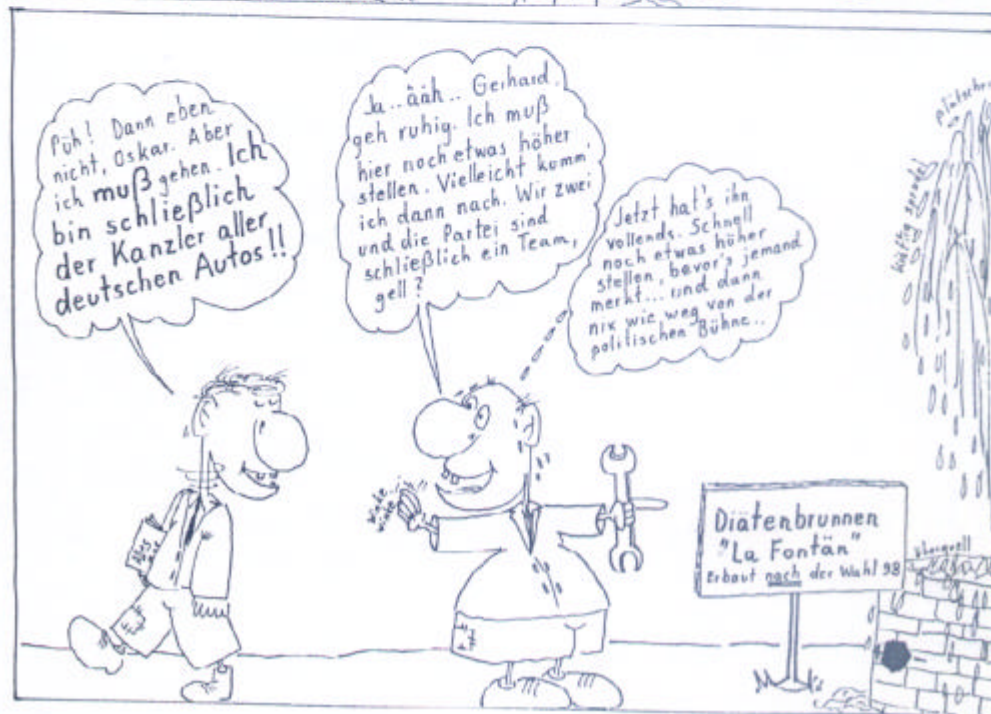 Püh! Dann eben
nicht, Oskar. Aber
ich muß gehen. Ich
bin schließlich
der Kanzler aller
deutschen Autos!!
Ja..ääh.. Gerhard.
geh ruhig. Ich muß
hier noch etwas höher
stellen. Vielleicht komm'
ich dann nach. Wir zwei
und die Partei sind
schließlich ein Team,
gell?
Jetzt hat's ihn
vollends. Schnell
noch etwas höher
stellen, bevor's jemand
merkt... und dann
nix wie weg von der
politischen Bühne..
plätscher
kräftig sprudel
winke
winke...
Diätenbrunnen
"La Fontän"
Erbaut nach der Wahl 98
überquell